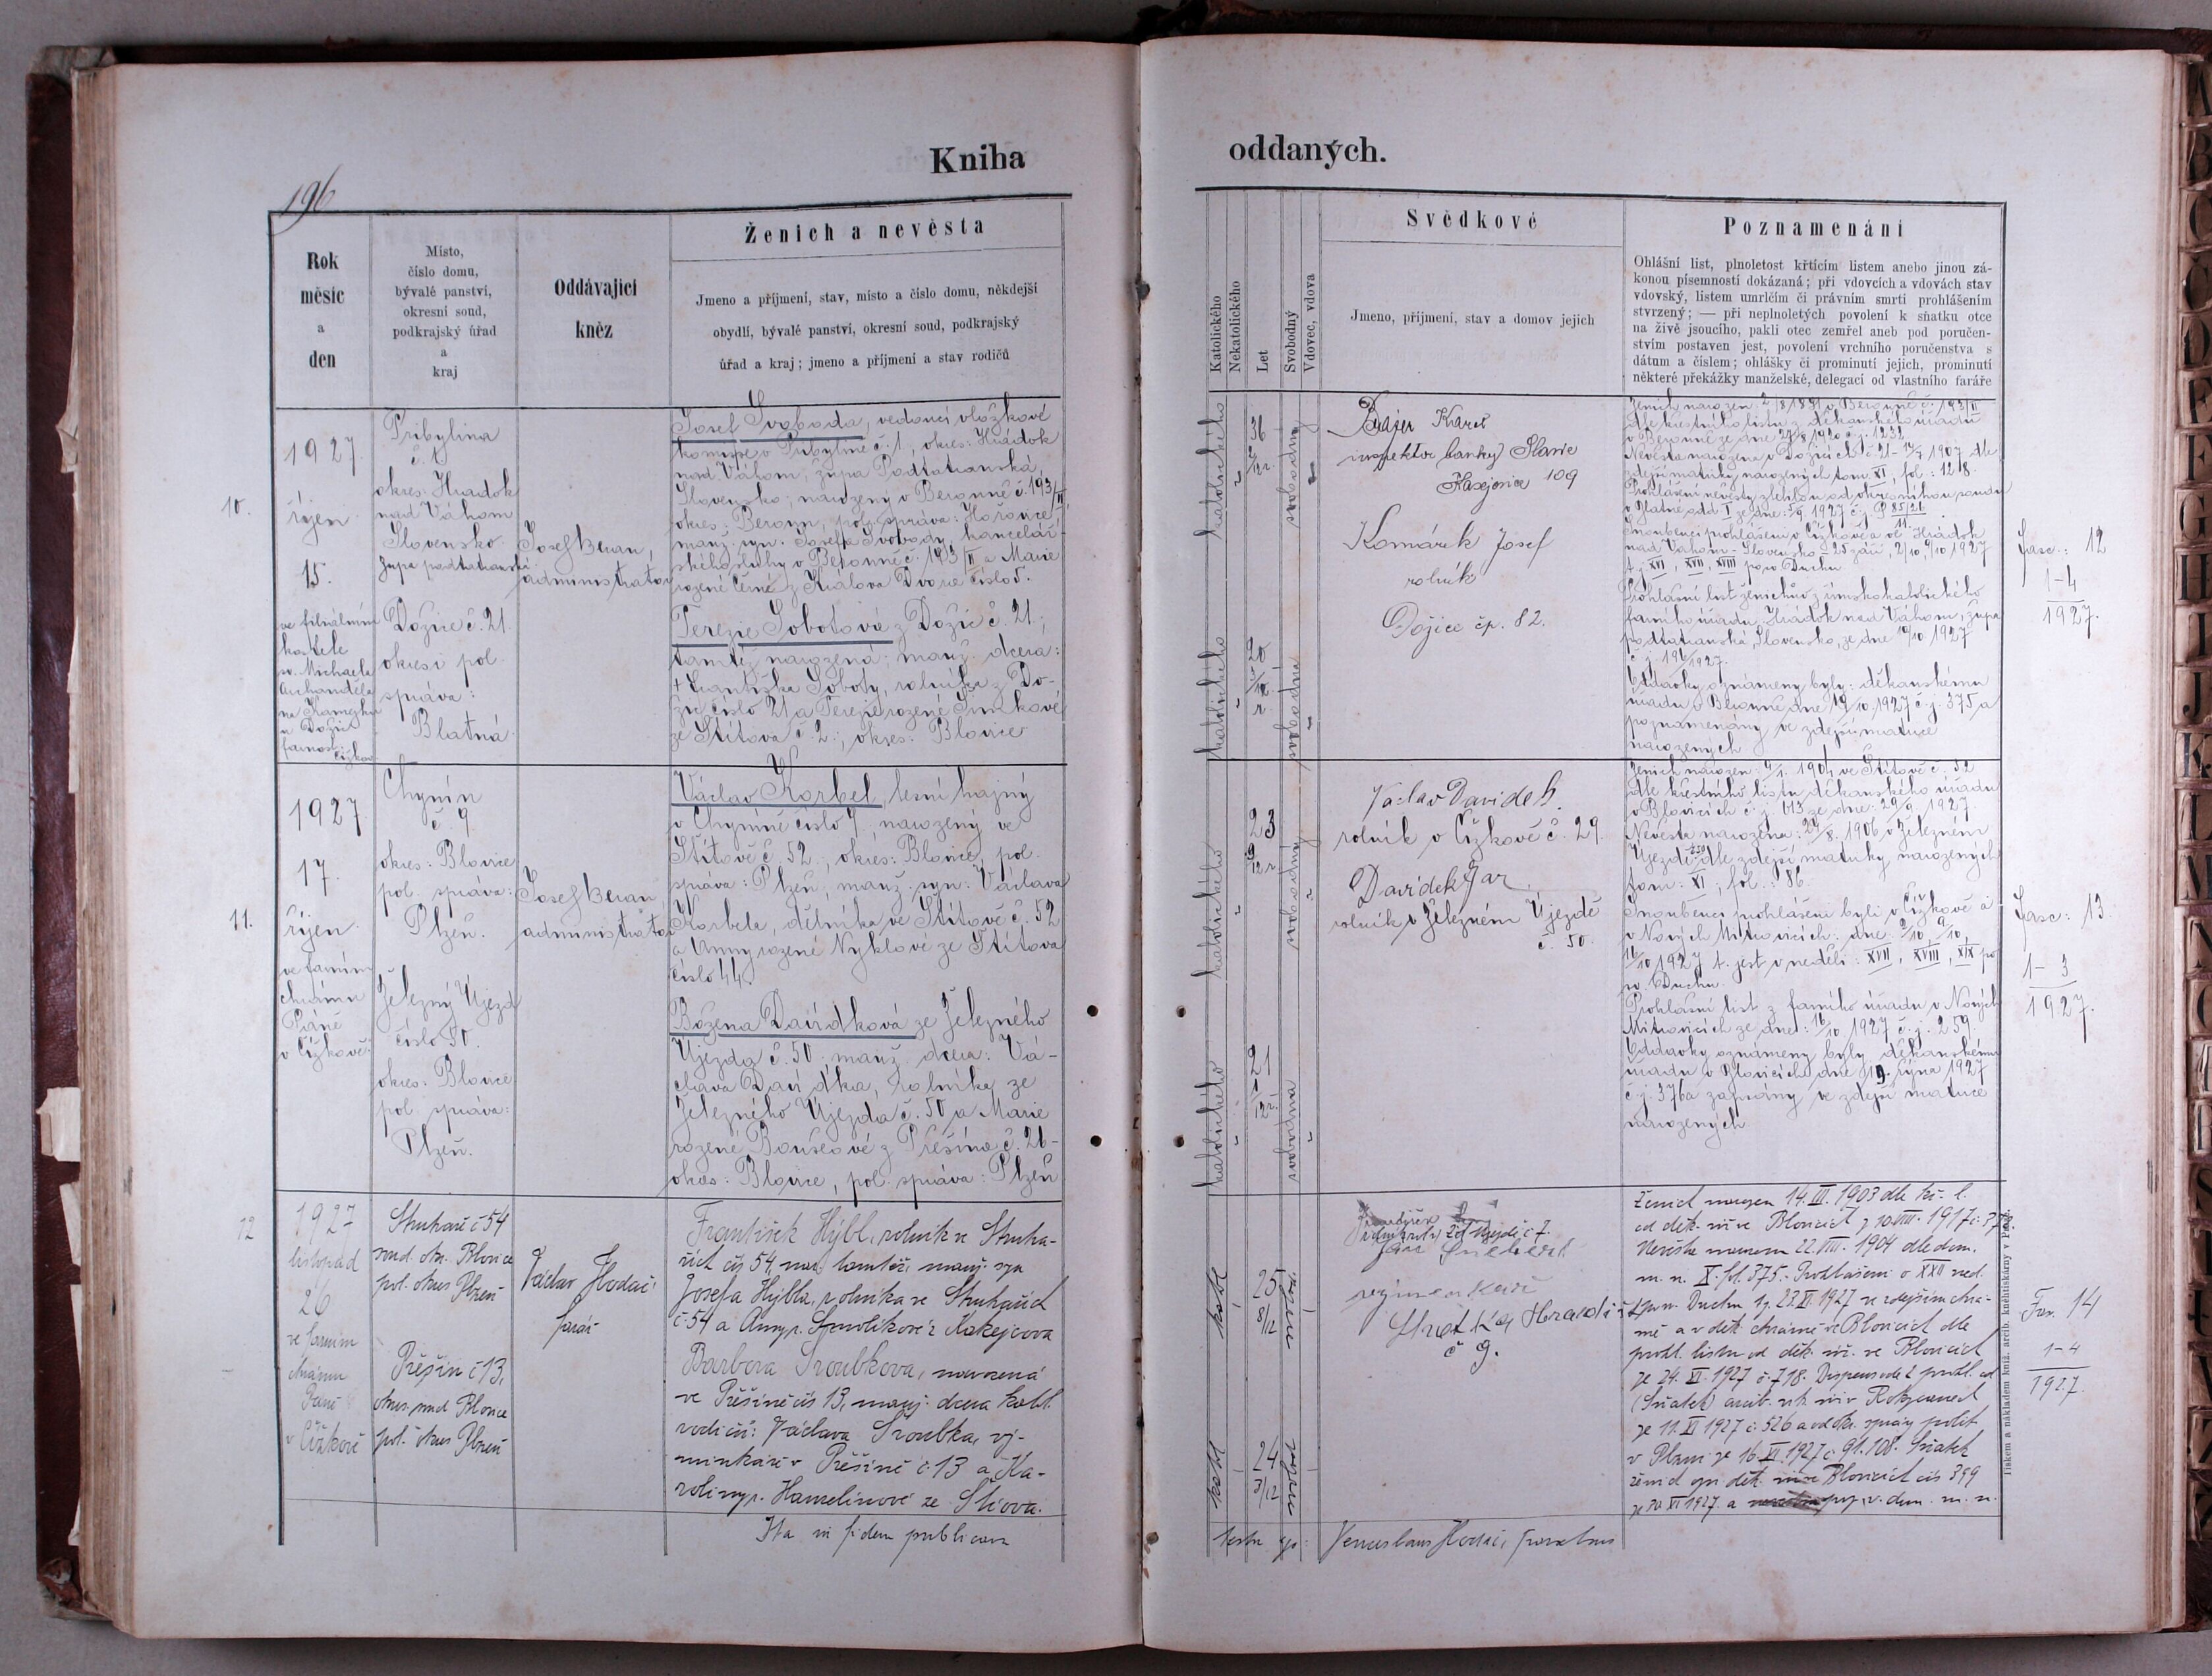 Kniha
196
Rok
měsíc
a
den
Místo,
číslo domu,
bývalé panství,
okresní soud,
podkrajský úřad
a
kraj
Oddávající
kněz
Ženich a nevěsta
Jmeno a příjmení, stav, místo a číslo domu, někdejší
obydlí, bývalé panství, okresní soud, podkrajský
úřad a kraj; jmeno a příjmení a stav rodičů
10.
1927.
říjen
15.
ve filiálním
kostele
sv. Michaela
Archanděla
na Kamejku
u Dožic
farnost:
Čížkov
Pribylina
č. 1
okres: Hradok
nad Váhom
Slovensko
župa podtatranská
Dožice č. 21.
okres i pol.
správa:
Blatná
Josef Beran,
administrator
Josef Svoboda, vedoucí
v Pribylině č. 1, okres: Hrádok
nad Váhom, župa Podtatranská,
Slovensko; narozený v Berouně č. 193/II
okres: Beroun, pol. správa: Hořovice,
manž. syn: Josefa Svobody, kancelář-
ského sluhy v Berouně č. 193/II a Marie
rozené Černé z Králova Dvora číslo 5.
Terezie Sobotová z Dožic č. 21;
tamtéž narozená; manž. dcera:
+ Františka Soboty, rolníka z Do-
žic číslo 21 a Terezie rozené
ze Štítova č. 2., okres: Blovice
11.
1927
17.
říjen
ve farním
chrámu
Páně
v Čížkově
Chynín
č. 9
okres: Blovice
pol. správa:
Plzeň.
Železný Újezd
číslo 50.
okres: Blovice
pol. správa:
Plzeň.
Josef Beran,
administrator
Václav Korbel, lesní hajný
v Chyníně číslo 9, narozený ve
Štítově č. 52., okres: Blovice, pol.
správa: Plzeň, manž. syn: Václava
Korbela, dělníka ve Štítově č. 52
a Anny rozené Nyklové ze Štítova
číslo 44.
Božena Davídková ze Železného
Újezda č. 50. manž. dcera: Vá-
clava Davídka, rolníka ze
Železného Újezda č. 50 a Marie
rozené Boušeové z Přešína č. 26-
okres: Blovice, pol. správa: Plzeň
12
1927
listopad
26
ve farním
chrámu
Páně
v Čížkově
Struhaře č 54
soud. okr. Blovice
pol. okres Plzeň
Přešín č 13,
okres soud Blovice
pol. okres Plzeň
Václav Hodač
farář
František Hýbl, rolník ve Struha-
řích čís 54, nar. tamtéž, manž. syn
Josefa Hýbla, rolníka ve Struhařích
č. 54 a Anny r. Smolíkové z Kakejcova
Barbora Šroubková, narozená
ve Přešíně čís 13, manž. dcera kath.
rodičů: Václava Šroubka, vý-
minkáře v Přešíně č. 13 a Ka-
roliny r. Hamelínové ze
Ita in fidem publicam
oddaných.
Katolického
Nekatolického
Let
Svobodný
Vdovec, vdova
Svědkové
Jmeno, příjmení, stav a domov jejich
Poznamenání
Ohlášní list, plnoletost křtícím listem anebo jinou zá-
konou písemností dokázaná; při vdovcích a vdovách stav
vdovský, listem umrlčím či právním smrti prohlášením
stvrzený; — při neplnoletých povolení k sňatku otce
na živě jsoucího, pakli otec zemřel aneb pod poručen-
stvím postaven jest, povolení vrchního poručenstva s
dátum a číslem; ohlášky či prominutí jejich, prominutí
některé překážky manželské, delegací od vlastního faráře
katolického
36
2/12 r.
svobodný
katolického
20
3/12
r.
svobodná
Karel
inspektor banky Slavie
Kasejovice 109
Komárek Josef
rolník
Dožice čp. 82.
Ženich narozen 2/8 1891 v Berouně č. 193/II
dle křestního listu z děkanského úřadu
v Berouně ze dne 27/8 1920 č. j. 1232
Nevěsta narozena v Dožicích č. 21 - 14/7 1907 dle
zdejší matriky narozených tom. XI, fol.: 128.
Prohlášení nevěsty zletilou od okresního soudu
v Blatné odd I ze dne: 5/9 1927 č. j. P 85/21
11.
Snoubenci prohlášeni v Čížkově a ve Hrádok
nad Váhom - Slovensko - 25 září, 2/10, 9/10 1927
t. j. XVI, XVII, XVIII po sv Duchu
Prohlášní list ženichův z římskokatolického
farního úřadu Hrádok nad Váhom, župa
podtatranská, Slovensko, ze dne 10/10 1927
č. j. 196/1927.
Oddavky oznámeny byly: děkanskému
úřadu v Berouně dne 19/10 1927 č. j. 375 a
poznamenány ve zdejší matrice
narozených
Fasc.: 12
1-4
1927.
katolického
23
9/12 r
svobodný
katolického
21
1/12 r.
svobodná
Václav Davídek
rolník v Čížkově č. 29.
Davídek Jan
rolník v Železném Újezdě
č. 50.
Ženich narozen: 4/1. 1904 ve Štítově č. 52
dle křestního listu děkanského úřadu
v Blovicích č. j. 613 ze dne: 29/9 1927.
Nevěsta narozena: 29/8. 1906 v Železném
Újezdě č. 50 dle zdejší matriky narozených
tom: XI; fol.: 86
Snoubenci prohlášeni byli v Čížkově a
v Nových Mitrovicích: dne: 2/10, 9/10,
16/10 1927 t. jest v neděli: XVII, XVIII, XIX po
sv. Duchu.
Prohlášní list z farního úřadu v Nových
Mitrovicích ze dne: 16/10 1927 č. j. 259.
Oddavky oznámeny byly děkanskému
úřadu v Blovicích dne 19. října 1927
č. j. 376 a zapsány ve zdejší matrice
narozených
Fasc: 13
1-3
1927.
kath
25
8/12
kath
24
3/12
Žel Újezdě č 7.
Hradiště
č 9.
Ženich narozen 14. III. 1903 dle kř. l.
od děk. úř. ve Blovicích z 10. VIII. 1917 č. 373.
Nevěsta narozena 22. VIII. 1904 dle dom.
m. n. X. fol. 375. Prohlášeni o XXV ned.
po sv. Duchu 1927 ve zdejším chrá-
mě a v děk. chrámě v Blovicích dle
prohl. listu od děk. úř. ve Blovicích
ze 24. XI. 1927 č. 718. Dispens ode 2 prohl. od
(Sňatek) arcib. vik. úř. v Rokycanech
ze 11. XI 1927 č. 526 a od okr. správy polit
v Plzni ze 16. XI. 1927 č. 91.108. Sňatek
ozn. děk. Blovicích čís 399
ze 30. XI 1927. a v. dom. m. n.
Fasc. 14
1-4
1927.
Venceslaus Hodač, parochus
Tiskem a nákladem kníž. arcib. knihtiskárny v Praze.